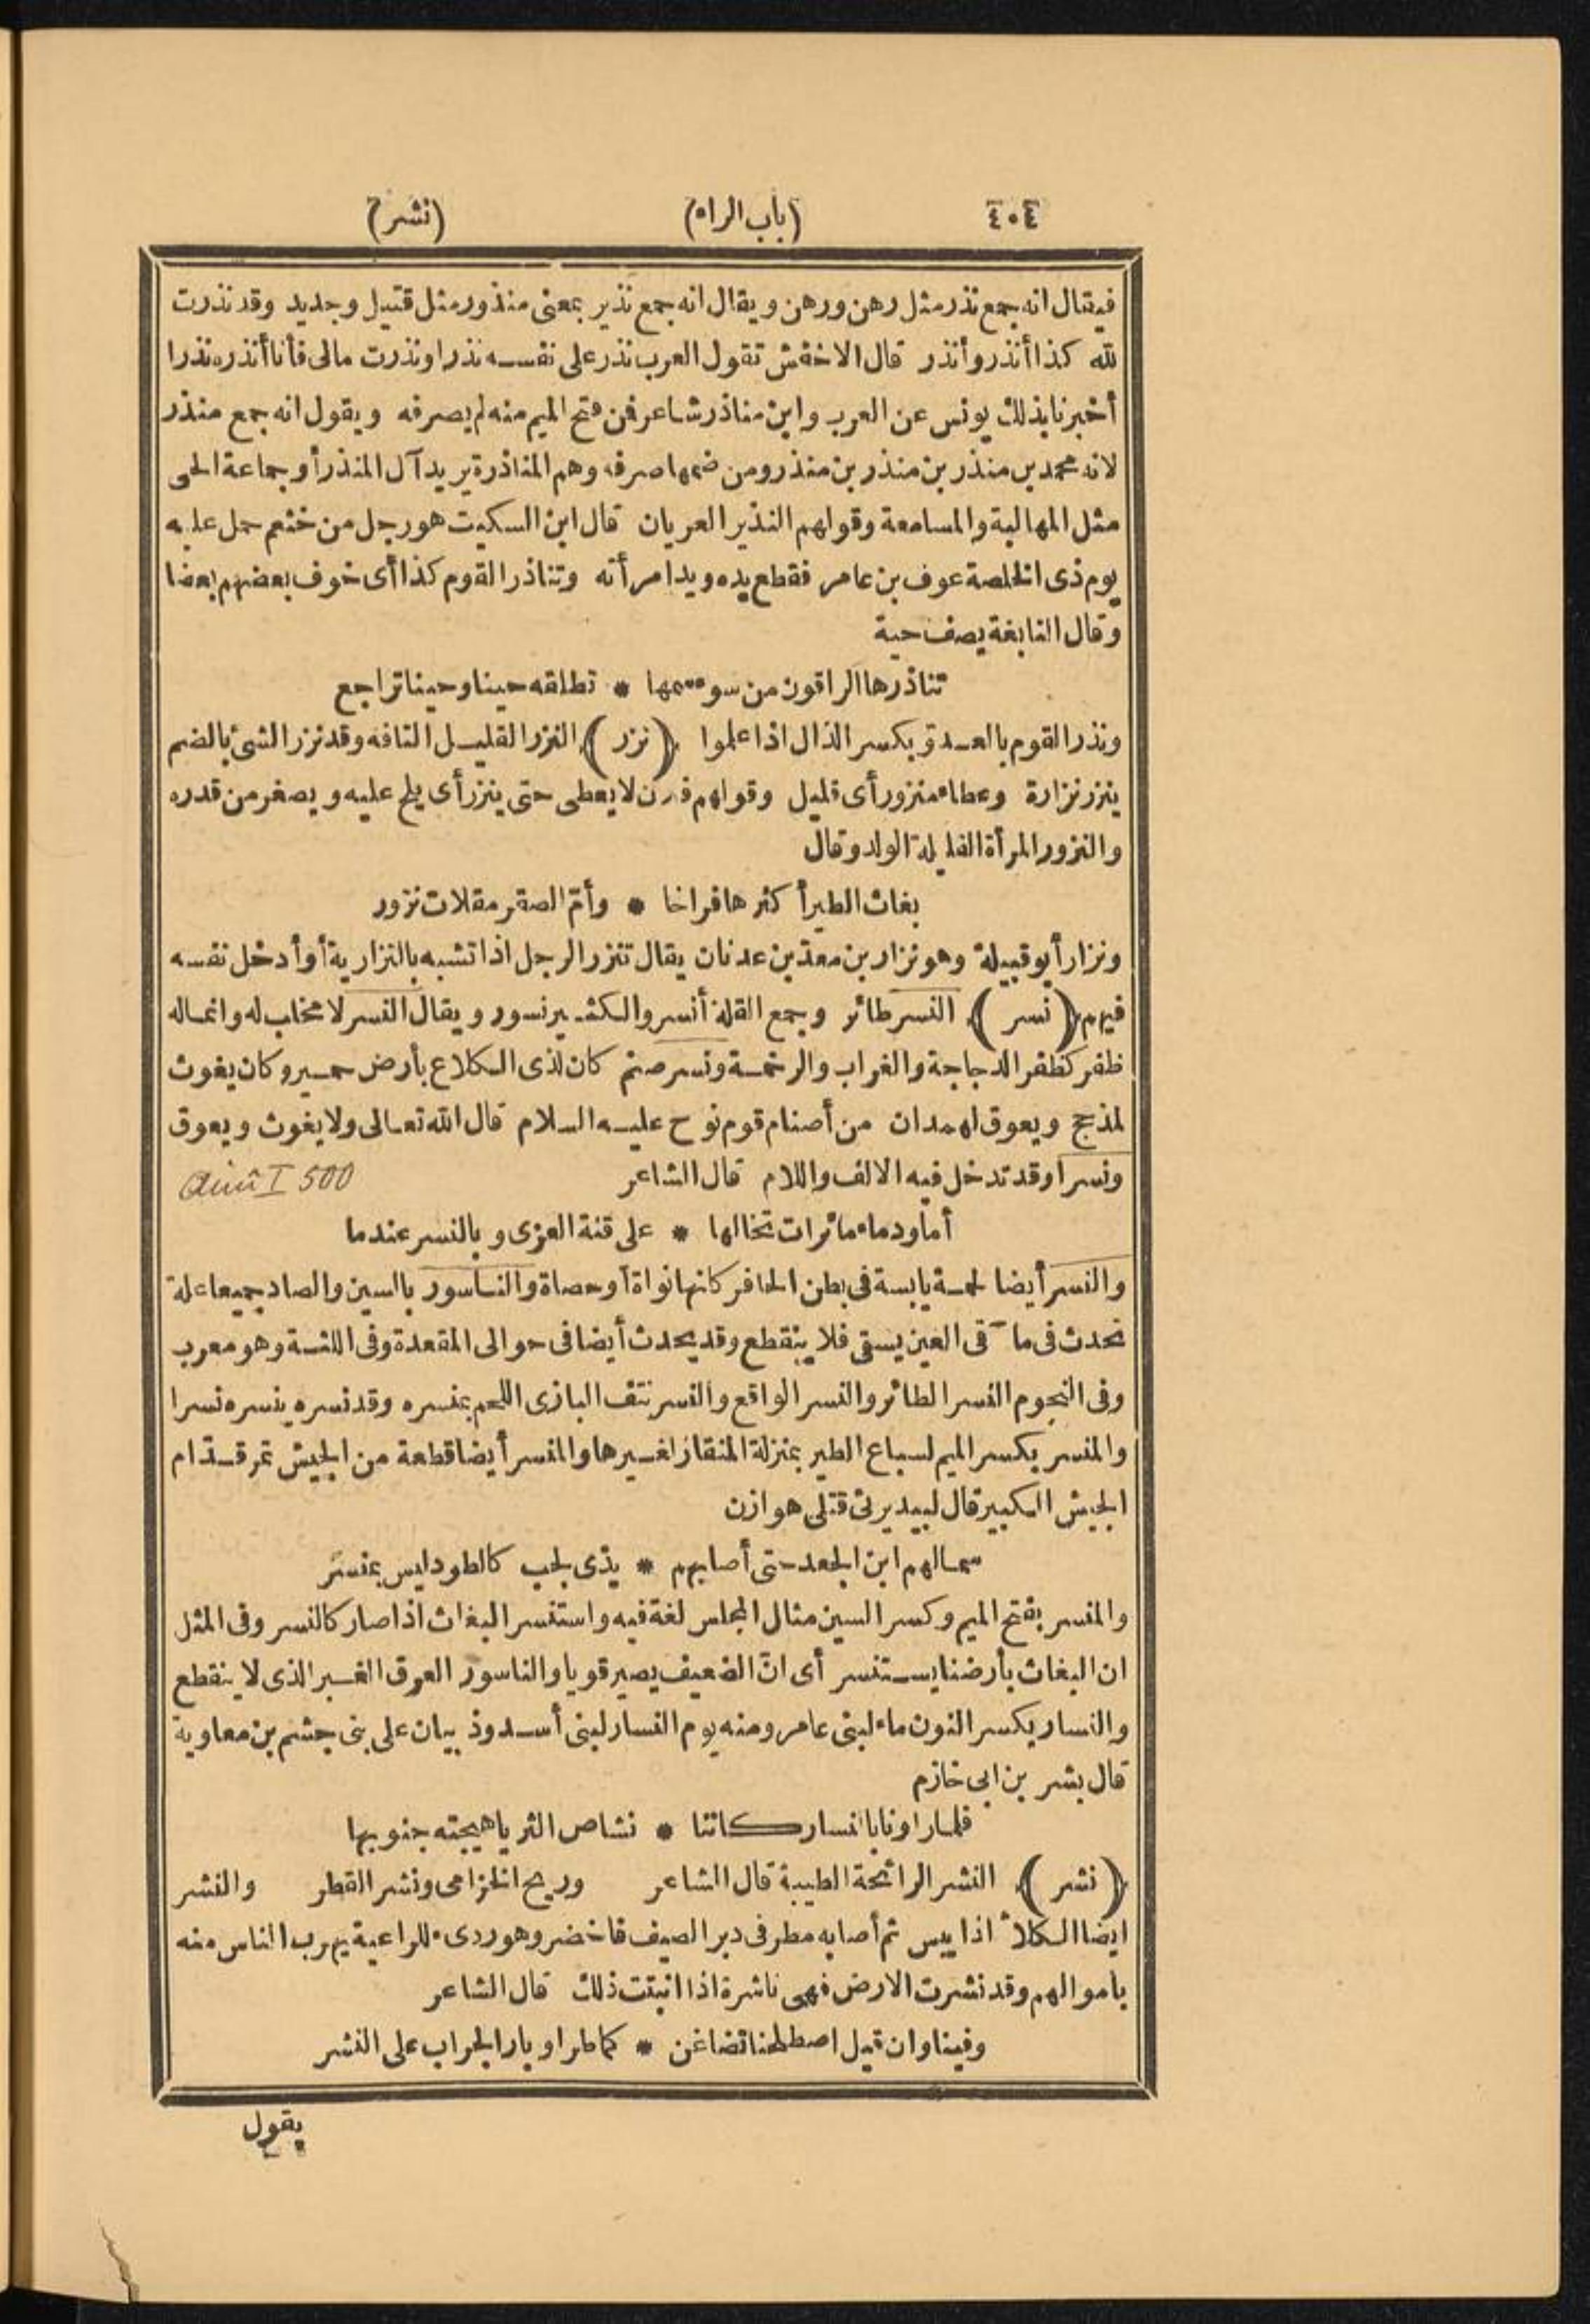 ٤٠٤ (باب الراء) (نشر)
فيقال انه جمع نذر مثل رهن ورهن ويقال انه جمع نذير بمعنى منذور مثل قتيل وجديد وقد نذرت
لله كذا أنذر وأنذر قال الاخفش تقول العرب نذر على نفسه نذرا ونذرت مالى فأنا أنذره نذرا
أخبرنا بذلك يونس عن العرب وابن مناذر شاعر فمن فتح الميم منه لم يصرفه ويقول انه جمع منذر
لانه محمد بن منذر بن منذر بن منذر ومن ضمها صرفه وهم المناذرة يريد آل المنذر أو جماعة الحى
مثل المهالبة والمسامعة وقولهم النذير العريان قال ابن السكيت هو رجل من خثعم حمل عليه
يوم ذى الخلصة عوف بن عامر فقطع يده ويد امرأته وتناذر القوم كذا أى خوف بعضهم بعضا
وقال النابغة يصف حية
تناذرها الراقون من سوء سمها * تطلقه حينا وحينا تراجع
ونذر القوم بالعدو بكسر الذال اذا علموا (نزر) النزر القليل التافه وقد نزر الشئ بالضم
ينزر نزارة وعطاء منزور أى قليل وقولهم فلان لا يعطى حتى ينزر أى يلح عليه ويصغر من قدره
والنزور المرأة القليلة الولد وقال
بغاث الطير أكثرها فراخا * وأم الصقر مقلات نزور
ونزار أبو قبيلة وهو نزار بن معد بن عدنان يقال تنزر الرجل اذا تشبه بالنزارية أو أدخل نفسه
فيهم (نسر) النسر طائر وجمع القلة أنسر والكثير نسور ويقال النسر لا مخلب له وانما له
ظفر كظفر الدجاجة والغراب والرخمة ونسر صنم كان لذى الكلاع بأرض حمير وكان يغوث
لمذحج ويعوق لهمدان من أصنام قوم نوح عليه السلام قال الله تعالى ولا يغوث ويعوق
ونسرا وقد تدخل فيه الالف واللام قال الشاعر
أما ودماء مائرات تخالها * على قنة العزى وبالنسر عندما
والنسر أيضا لحمة يابسة فى بطن الحافر كانها نواة أو حصاة والناسور بالسين والصاد جميعا علة
تحدث فى مآقى العين يسقى فلا ينقطع وقد يحدث أيضا فى حوالى المقعدة وفى اللثة وهو معرب
وفى النجوم النسر الطائر والنسر الواقع والنسر نتف البازى اللحم بمنسره وقد نسره ينسره نسرا
والمنسر بكسر الميم لسباع الطير بمنزلة المنقار لغيرها والمنسر أيضا قطعة من الجيش تمر قدام
الجيش الكبير قال لبيد يرثى قتلى هوازن
سمالهم ابن الجعد حتى أصابهم * بذى لجب كالطود ليس بمنسر
والمنسر بفتح الميم وكسر السين مثال المجلس لغة فيه واستنسر البغاث اذا صار كالنسر وفى المثل
ان البغاث بأرضنا يستنسر أى ان الضعيف يصير قويا والناسور العرق الغبر الذى لا ينقطع
والنسار بكسر النون ماء لبنى عامر ومنه يوم النسار لبنى أسد وذبيان على بنى جشم بن معاوية
قال بشر بن ابى خازم
فلما راونا بالنسار كاننا * نشاص الثريا هيجته جنوبها
(نشر) النشر الرائحة الطيبة قال الشاعر وريح الخزامى ونشر القطر والنشر
ايضا الكلأ اذا يبس ثم أصابه مطر فى دبر الصيف فاخضر وهو ردىء للراعية يهرب الناس منه
باموالهم وقد نشرت الارض فهى ناشرة اذا انبتت ذلك قال الشاعر
وفينا وان قيل اصطلحنا تضاغن * كما طر اوبار الجراب على النشر
يقول
I 500